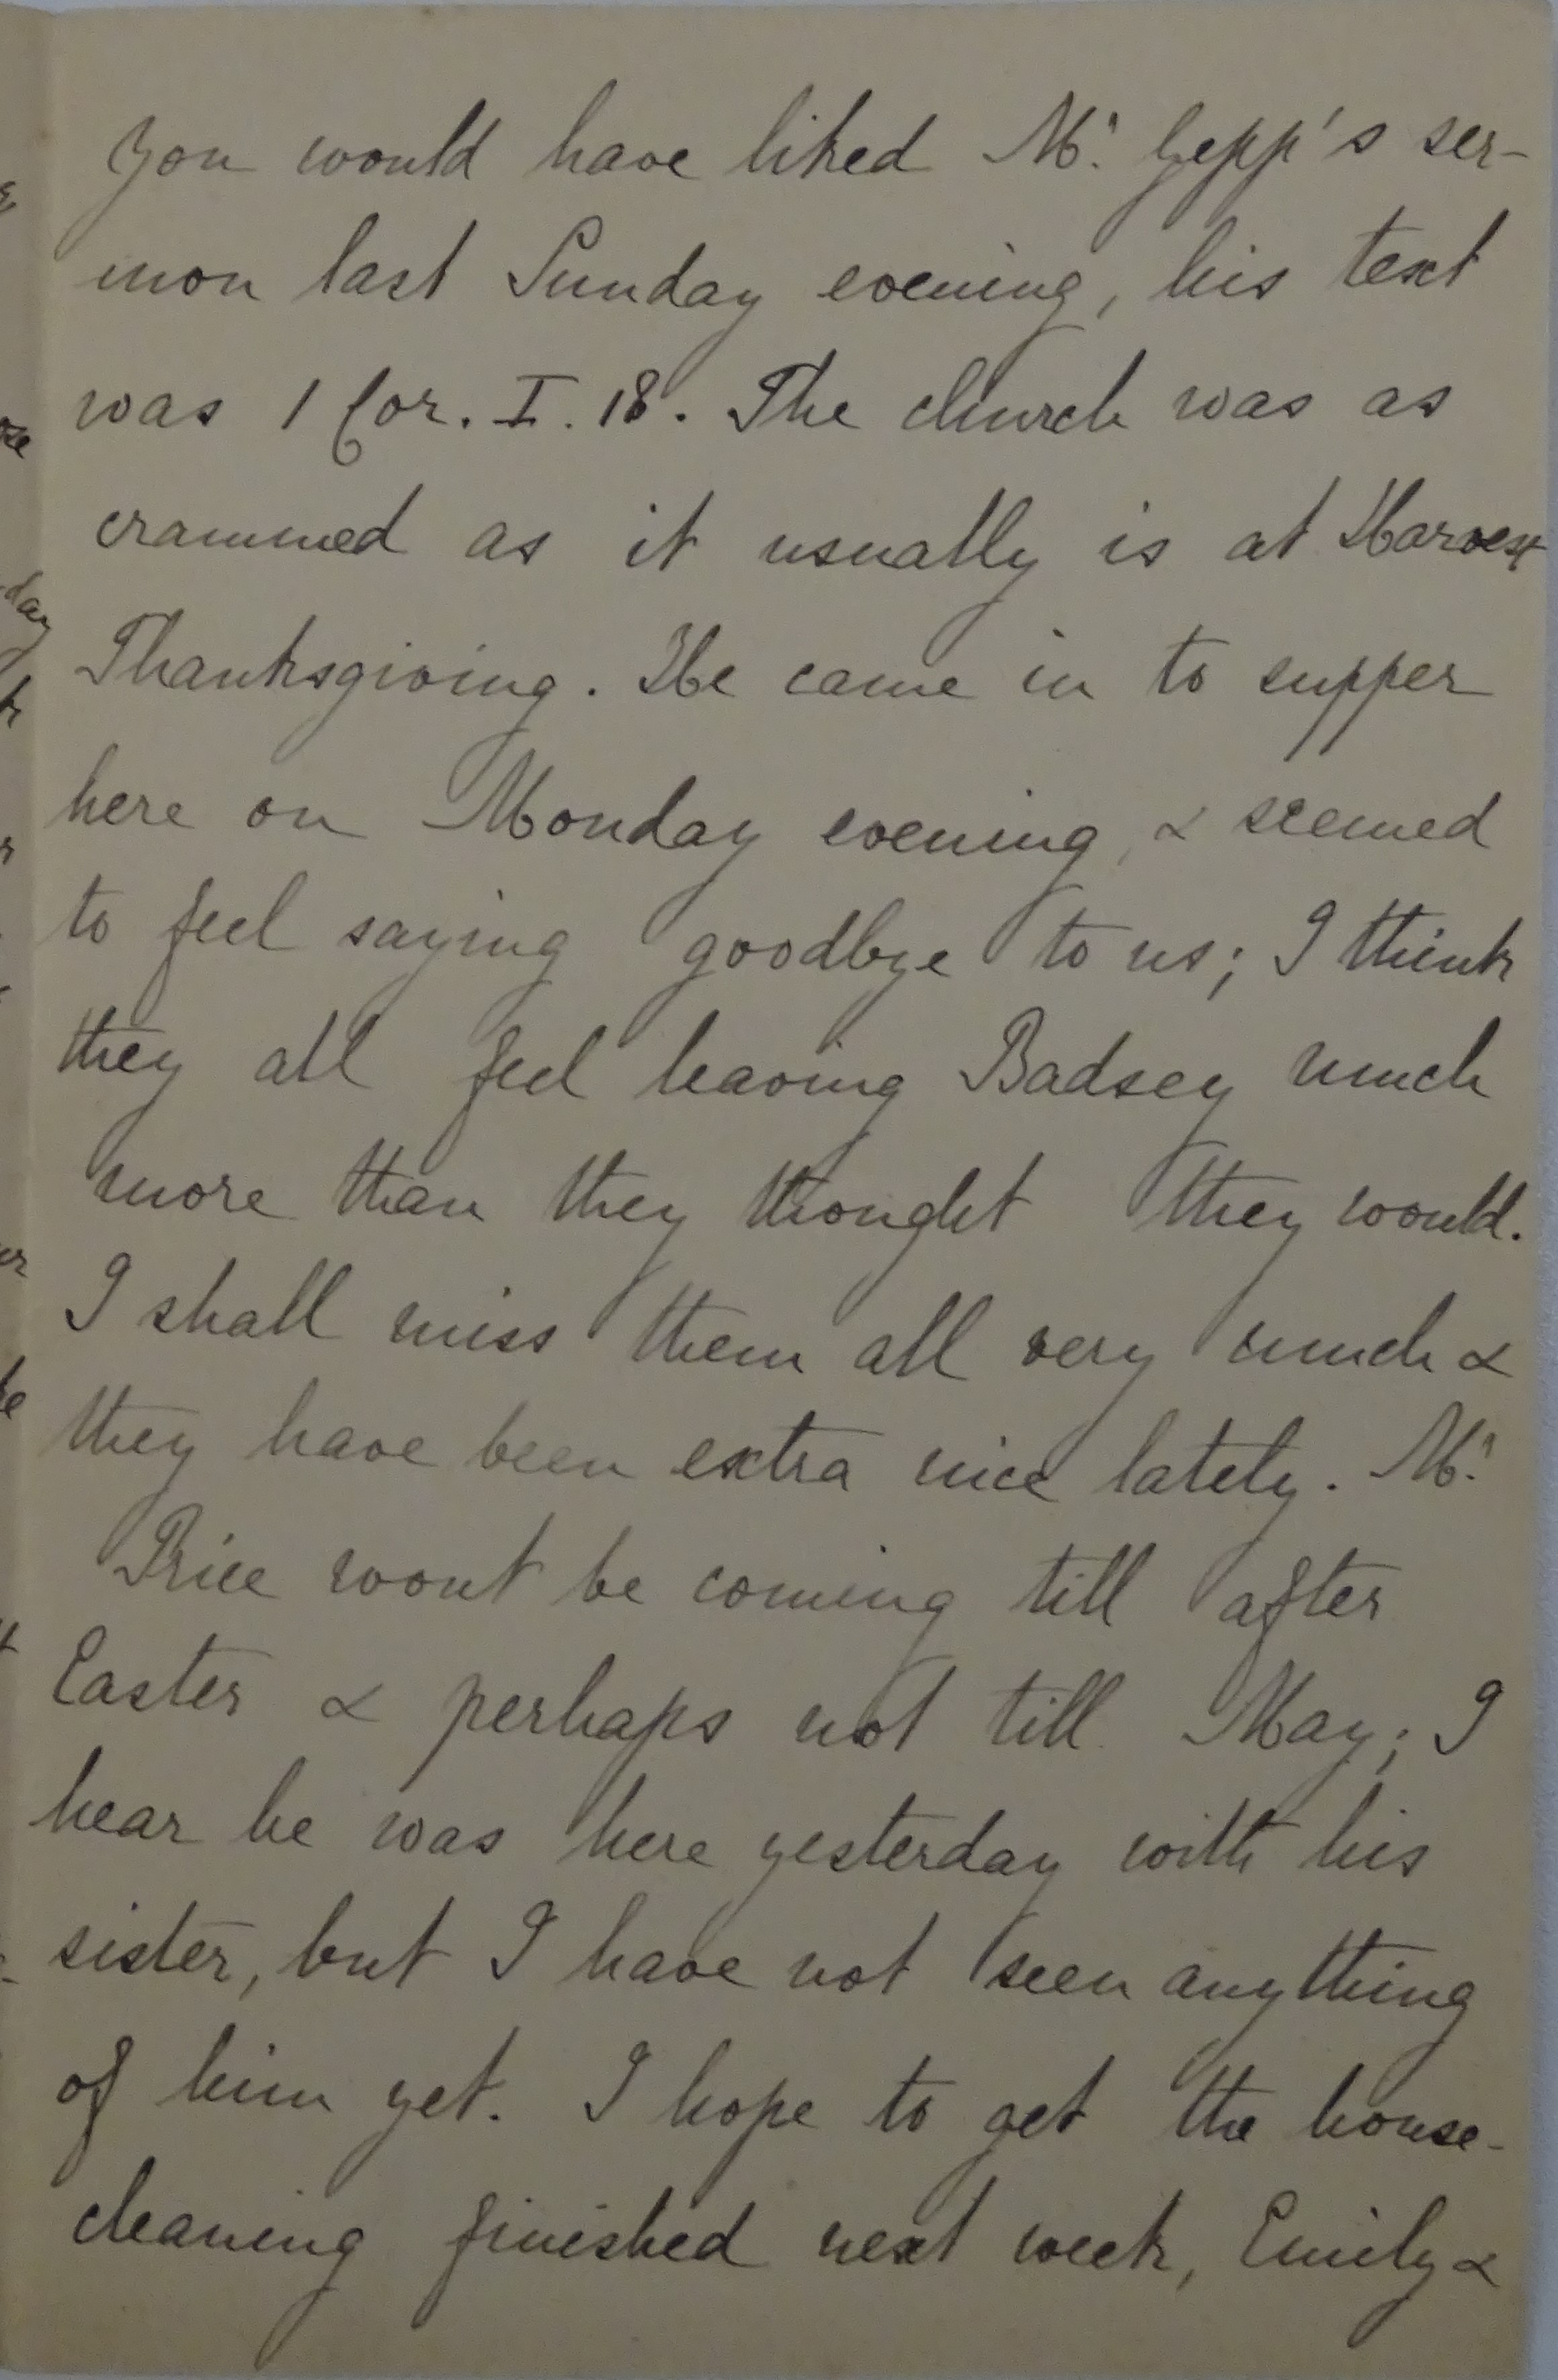 you would have liked Mr. Gepp's ser-
mon last Sunday evening, his text
was 1 Cor. I. 18. The church was as
crammed as it usually is at Harvest
Thanksgiving. He came in to supper
here on Monday evening, & seemed
to feel saying goodbye to us; I think
they all feel leaving Badsey much
more than they thought they would.
I shall miss them all very much &
they have been extra nice lately. Mr.
Price wont be coming till after
Easter & perhaps not till May; I
hear he was here yesterday with his
sister, but I have not seen anything
of him yet. I hope to get the house-
cleaning finished next week, Emily &